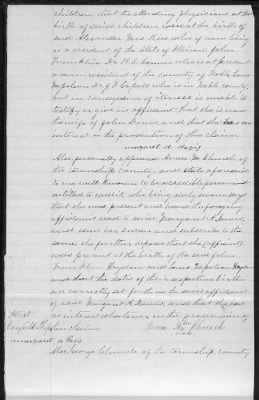 children, that the attending physician at the
birth of said children, were at the birth of
and Alexander Mc Rice who is now living
is a resident of the State of Illinois John
Franklin Dr. H. S. who is at present
a non resident of the county of Noble, Louis
Napoleon Dr. J. F. Capell who is in Noble county,
but in consequence of illness is unable to
testify or give his affidavit. That she is now
the wife of John Davis, and that she has no
interest in the prosecution of this claim
margaret a Davis
Also personally appeared Anna M. Church of
the township, county, and state aforesaid
to me well known to be a credible person and
entitled to credit, who being duly sworn says
that she was present and heard the foregoing
affidavit read to said Margaret A. Davis,
and saw her swear and subscribe to the
same. she further deposes that she (affiant)
was present at the birth of the said John
Franklin and Louis Napoleon
and that the dates of their respective births
are correctly set forth in the said affidavit
of said Margaret A. Davis, and that she has
no interest whatever in the prosecution of
this claim
Attest
Anna Church
her
mark
margaret a Davis
Also George Church of the township, county